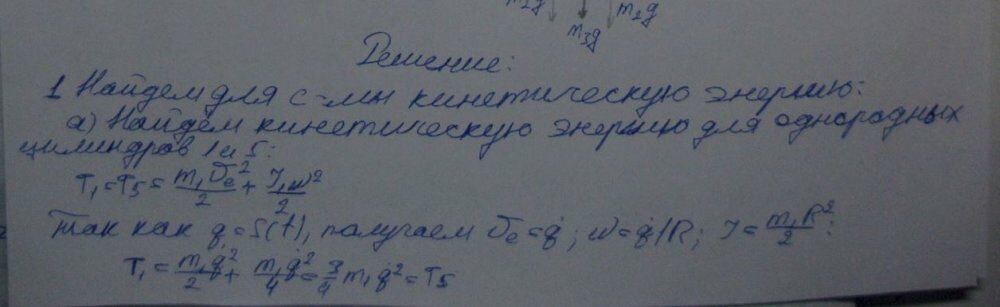 m₂g m₂g
m₃g
Решение:
1 Найдем для с-мы кинетическую энергию:
а) Найдём кинетическую энергию для однородных
цилиндров 1 и 5:
T₁=T₅= m₁υe²/2 + J₁ω²/2
Так как q=S(t), получаем υe=q̇; ω=q̇/R; J= m₁R²/2:
T₁= m₁q̇²/2 + m₁q̇²/4 = 3/4 m₁q̇² = T₅